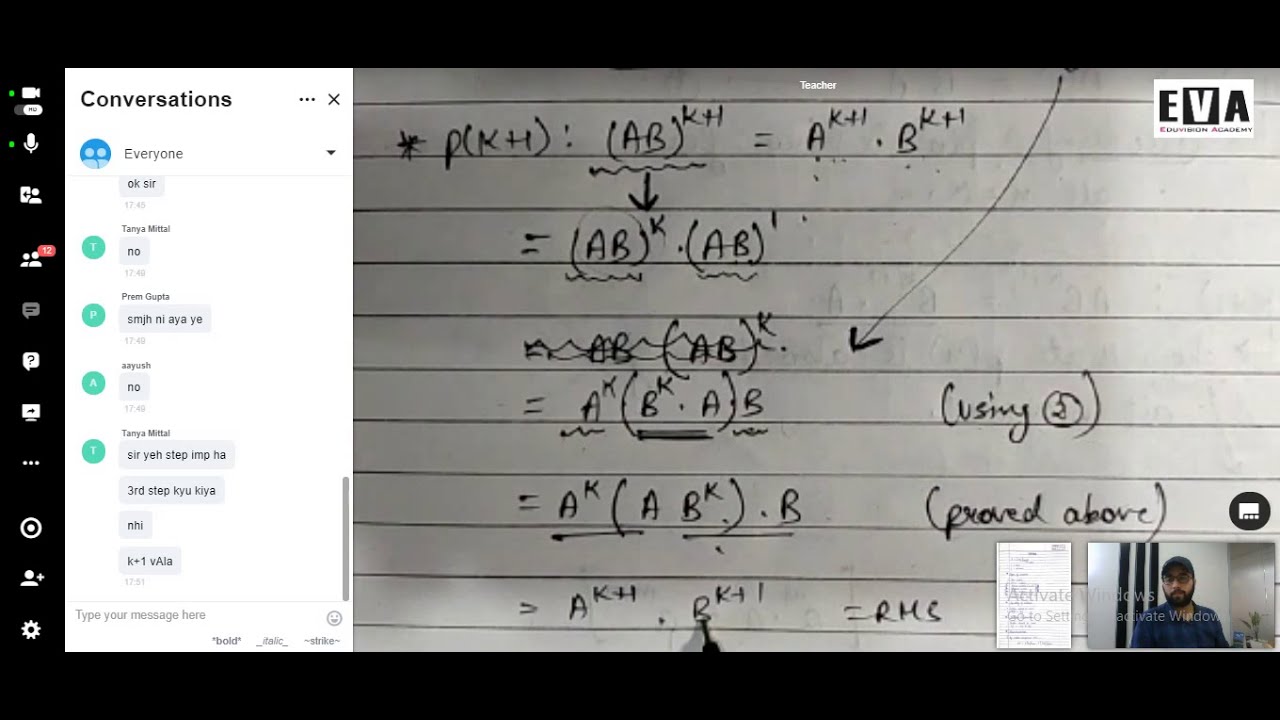 Conversations
Everyone
ok sir
17:45
Tanya Mittal
T
no
17:49
Prem Gupta
P
smjh ni aya ye
17:49
aayush
A
no
17:49
Tanya Mittal
T
sir yeh step imp ha
3rd step kyu kiya
nhi
k+1 vAla
17:51
Type your message here
*bold* _italic_ ~strike~
HU
12
Teacher
EVA
EDUVISION ACADEMY
* P(K+1) : (AB)^{K+1} = A^{K+1} . B^{K+1}
= (AB)^K . (AB)^1
= AB (AB)^K .
= A^K (B^K . A) B (using ②)
= A^K (A B^K) . B (proved above)
= A^{K+1} . B^{K+1} = RHS
Activate Windows
Go to Setting activate Windows